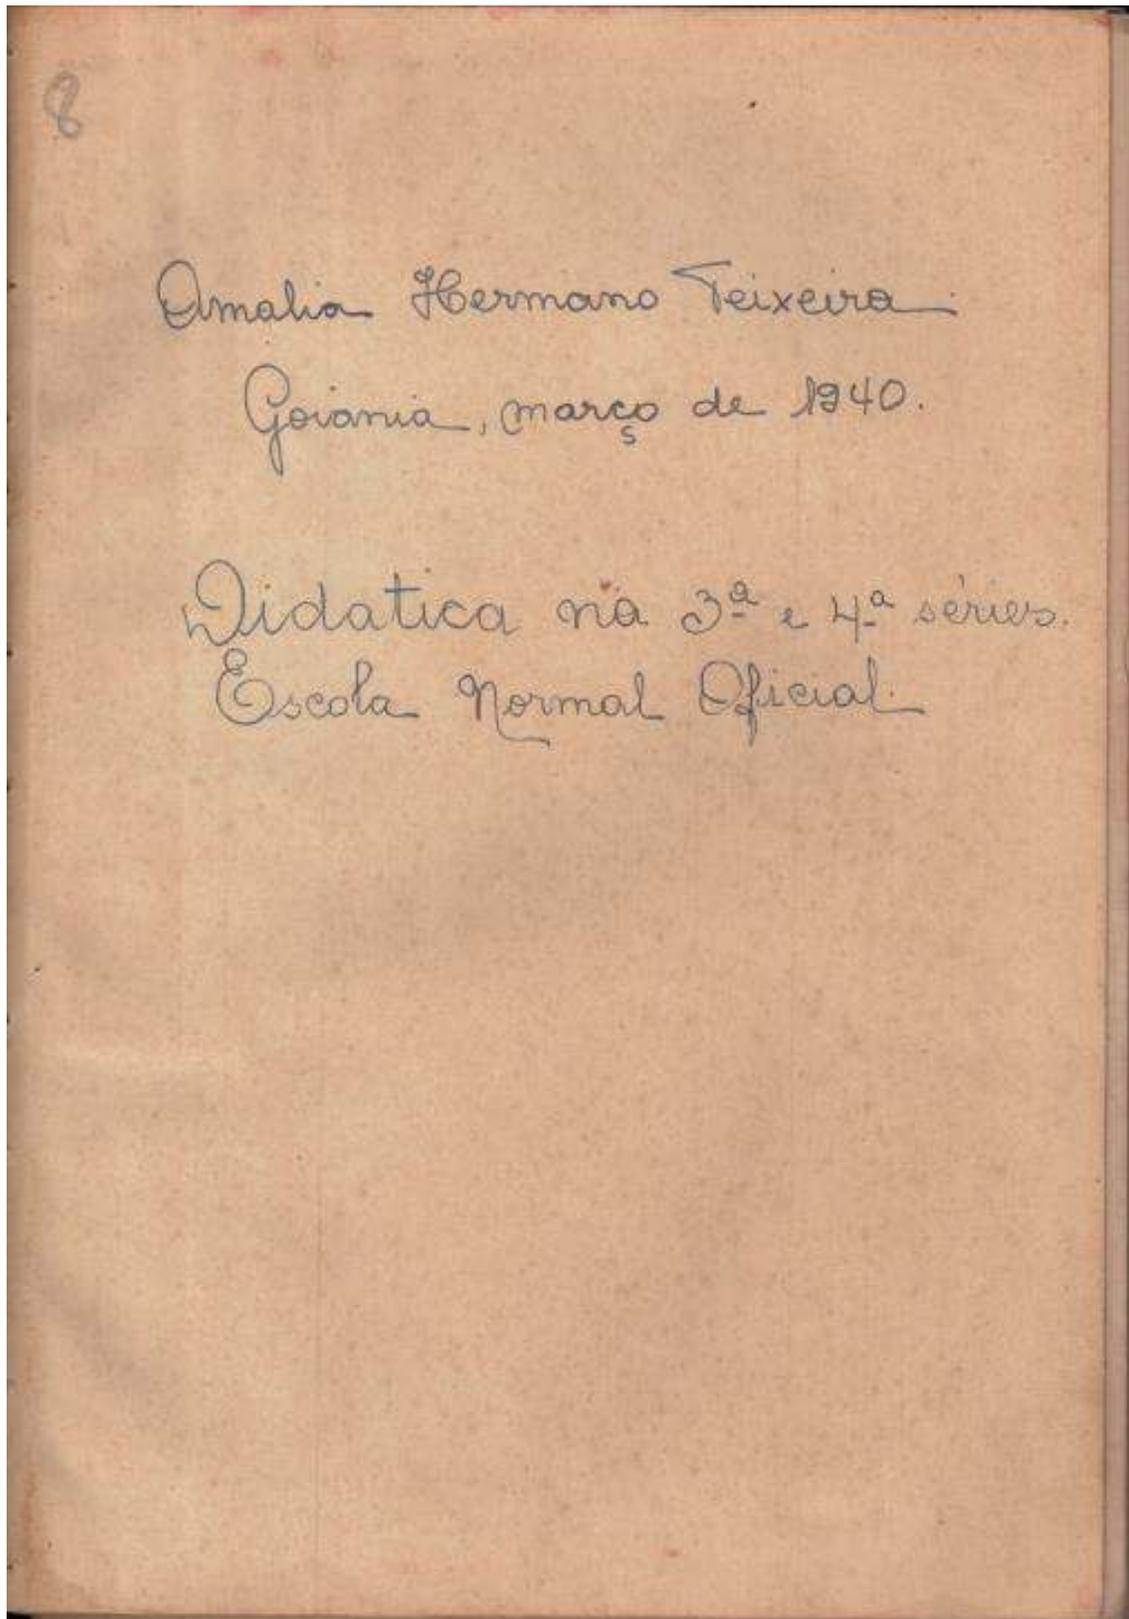 8
Amalia Hermano Teixeira
Goiania, março de 1940.
Didatica na 3ª e 4ª séries.
Escola Normal Oficial